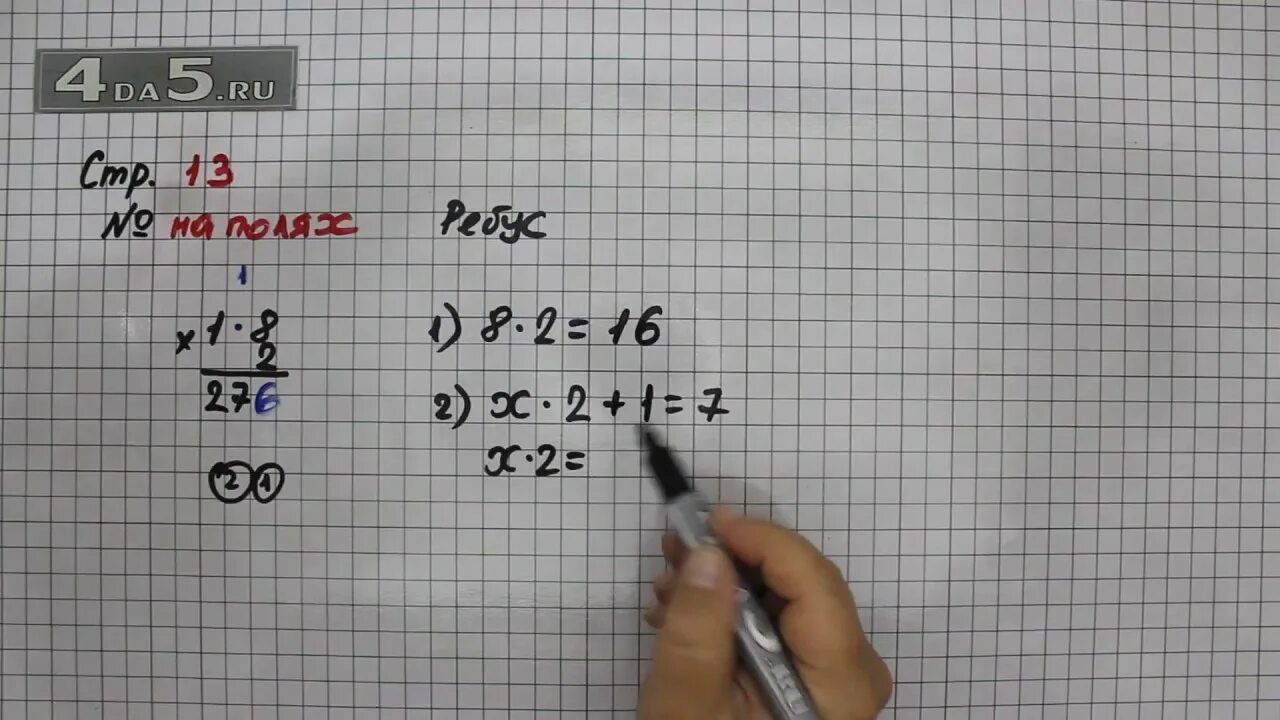 4DA5.RU
Стр. 13
№ на полях
Ребус
1
× 1·8
2
276
2 1
1) 8·2=16
2) x·2+1=7
x·2=